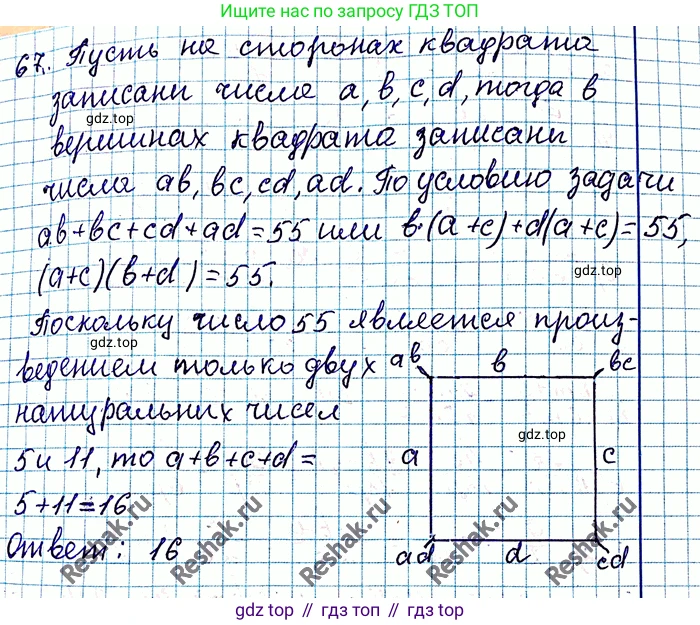 Ищите нас по запросу ГДЗ ТОП
67. Пусть на сторонах квадрата
записани числа a, b, c, d, тогда в
gdz.top
вершинах квадрата записани
числа ab, bc, cd, ad. По условию задачи
ab+bc+cd+ad=55 или b·(a+c)+d(a+c)=55,
gdz.top
(a+c)(b+d)=55.
Поскольку число 55 является произ-
ведением только двух
натуральних чисел
5 и 11, то a+b+c+d=
5+11=16
Ответ: 16
ab b bc
gdz.top
a c
ad d cd
Reshak.ru Reshak.ru Reshak.ru Reshak.ru
gdz top // гдз топ // gdz.top